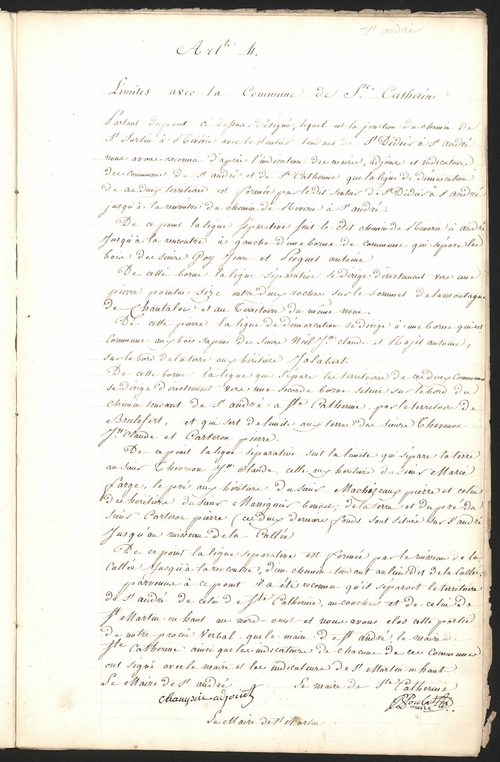 St andré
Artle 4.
Limites avec la Commune de Ste Catherine
Partant du point ci dessus désigné, lequel est la jonction du chemin de
St Sorlin à Riverie avec le sentier tendant de St Didier à St andré
nous avons reconnu d'après l'indication des maires, adjoins et indicateurs
des communes de St andré et de Ste Catherine que la ligne de démarcation
de ces deux territoires est formée par le dit sentier de St Didier à St andré
jusqu'à la rencontre du chemin de Riverie à St andré.
De ce point la ligne séparative suit le dit chemin de Riverie à St andré
Jusqu'à la rencontre à gauche d'une borne de commune qui sépare les
bois des sieurs Goy Jean et Picquet antoine
De cette borne la ligne séparative se dirige directement vers une
pierre pointue Size entre deux rochers sur le sommet de la montagne
de Chantalou et au Territoire du même nom.
De cette pierre la ligne de démarcation se dirige à une borne qui est
Commune aux bois Sapins des Sieurs Jn claude et antoine,
sur le bord de la terre aux héritiers Jalabert.
De cette borne la ligne qui Sépare les territoires de ces deux Communes
se dirige directement vers une seconde borne située sur le bord du
chemin tendant de St andré à Ste Catherine, par le territoire de
et qui sert de limite aux terres des sieurs Thevenon
Jn Claude et Carteron pierre.
De ce point la ligne séparative suit la limite qui sépare la terre
au Sieur Thevenon Jn Claude, celle aux héritiers du sieur Marie
farge, le pré aux héritiers du sieur pierre et celui
des héritiers du Sieur Maniquis benoit, de la terre et du pré du
Sieur Carteron pierre (ces deux derniers fonds sont situés sur St andré
Jusqu'au ruisseau de la Callée
De ce point la ligne séparative est formée par le ruisseau de la
Callée Jusqu'à la rencontre, d'un chemin tendant au lieu dit de la Callée
parvenus à ce point il a été reconnu qu'il séparait le territoire
de St andré de celui de Ste Catherine, au couchant et de celui de
St Martin en haut au nord-ouest et nous avons clos cette partie
de notre procès verbal que le maire de St andré, le maire de
Ste Catherine ainsi que les indicateurs de chacune de ces Communes
ont signé avec le maire et les indicateurs de St Martin en haut
Le Maire de St andré Le maire de Ste Catherine
adjoint maire
Le Maire de St Martin